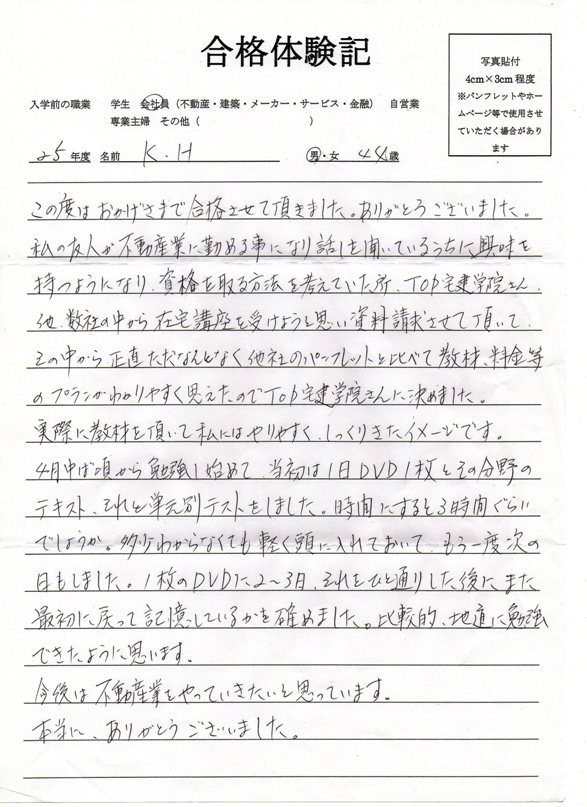 合格体験記
写真貼付
4cm×3cm程度
※パンフレットやホー
ムページ等で使用させ
ていただく場合があり
ます
入学前の職業 学生 会社員(不動産・建築・メーカー・サービス・金融) 自営業
専業主婦 その他( )
25年度 名前 K.H 男・女 44歳
この度はおかげさまで合格させて頂きました。ありがとうございました。
私の友人が不動産業に勤める事になり話しを聞いているうちに、興味を
持つようになり、資格を取る方法を考えていた所、TOP宅建学院さん、
他、数社の中から在宅講座を受けようと思い資料請求させて頂いて、
その中から正直ただなんとなく他社のパンフレットと比べて教材、料金等
のプランがわかりやすく思えたのでTOP宅建学院さんに決めました。
実際に教材を頂いて私にはやりやすく、しっくりきたイメージです。
4月中ば頃から勉強し始めて、当初は1日DVD1枚とその分野の
テキスト、それと単元別テストをしました。時間にすると3時間ぐらい
でしょうか。多少わからなくても軽く頭に入れておいて、もう一度次の
日もしました。1枚のDVDに2〜3日、それをひと通りした後にまた
最初に戻って記憶しているかを確めました。比較的、地道に勉強
できたように思います。
今後は不動産業をやっていきたいと思っています。
本当に、ありがとうございました。